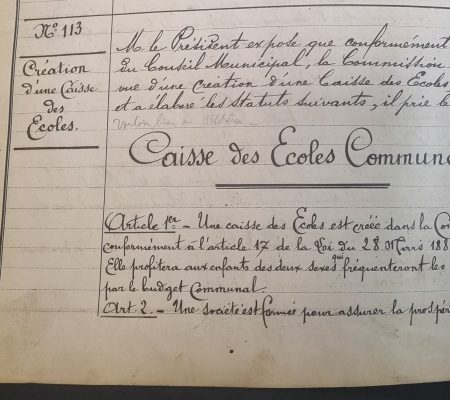 N° 113
Création
d'une Caisse
des
Ecoles.
M. le Président expose que conformément
du Conseil Municipal, la Commission
vue d'une création d'une Caisse des Ecoles
et a élaboré les statuts suivants, il prie le
vouloir bien en
Caisse des Ecoles Communa
Article 1er - Une caisse des Ecoles est créée dans la Co
conformément à l'article 17 de la Loi du 28 Mars 188
Elle profitera aux enfants des deux sexes qui fréquenteront les
par le budget Communal.
Art. 2. - Une société est formée pour assurer la prospéri